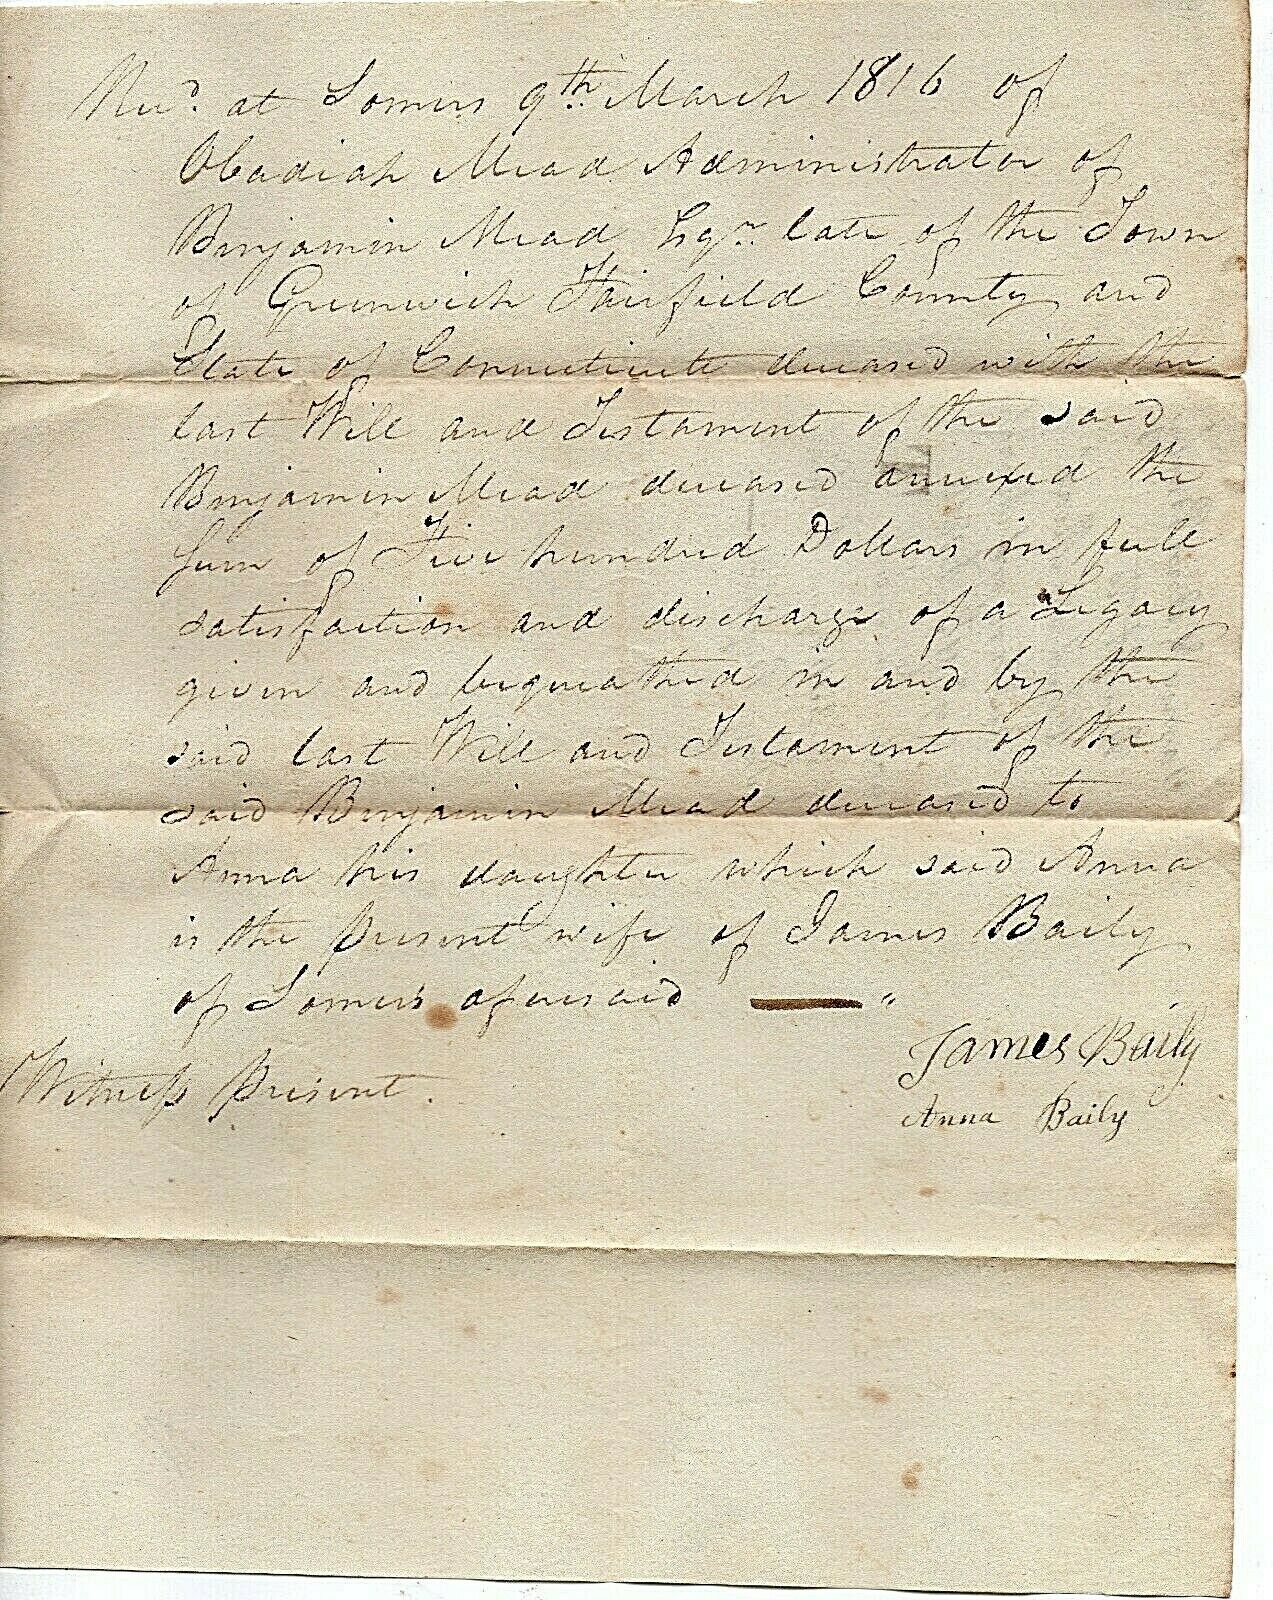 Recd. at Somers 9th March 1816 of
Obadiah Mead Administrator of
Benjamin Mead Esqr. late of the Town
of Greenwich Fairfield County and
State of Connecticut deceased with the
last Will and Testament of the said
Benjamin Mead deceased annexed the
Sum of Five hundred Dollars in full
satisfaction and discharge of a Legacy
given and bequeathed in and by the
said last Will and Testament of the
said Benjamin Mead deceased to
Anna his daughter which said Anna
is the Present wife of James Baily
of Somers aforesaid — "
James Baily
Witness Present.
Anna Baily